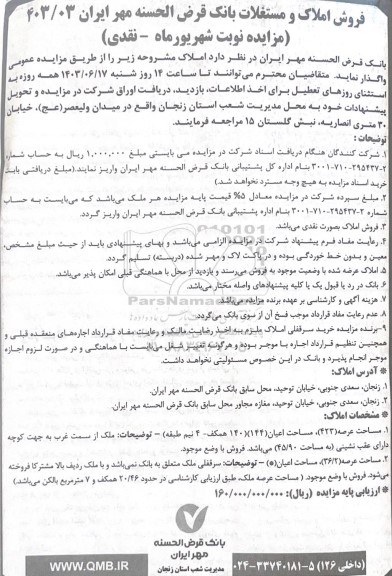 فروش املاک و مستغلات بانک قرض الحسنه مهر ایران ۴۰۳/۰۳
(مزایده نوبت شهریورماه - نقدی)
بانک قرض الحسنه مهر ایران در نظر دارد املاک مشروحه زیر را از طریق مزایده عمومی
واگذار نماید. متقاضیان محترم می‌توانند تا ساعت ۱۴ روز شنبه ۱۴۰۳/۰۶/۱۷ همه روزه به
استثنای روزهای تعطیل برای اخذ اطلاعات، بازدید، دریافت اوراق شرکت در مزایده و تحویل
پیشنهادات خود به محل مدیریت شعب استان زنجان واقع در میدان ولیعصر(عج)، خیابان
۳۰ متری انصاریه، نبش گلستان ۱۵ مراجعه فرمایند.
توضیحات :
۱. شرکت کنندگان هنگام دریافت اسناد شرکت در مزایده می بایستی مبلغ ۱,۰۰۰,۰۰۰ ریال به حساب شماره
۳۰۰۱-۷۱۰-۲۹۵۴۳۷-۲ بنام اداره کل پشتیبانی بانک قرض الحسنه مهر ایران واریز نمایند.(مبلغ دریافتی بابت
خرید اسناد مزایده به هیچ وجه مسترد نخواهد شد.)
۲. مبلغ سپرده شرکت در مزایده معادل ۵% قیمت پایه مزایده هر ملک می‌باشد که می‌بایست به حساب
شماره ۳۰۰۱-۷۱۰-۲۹۵۴۳۷-۲ بنام اداره پشتیبانی بانک قرض الحسنه مهر ایران واریز گردد.
۳. فروش املاک بصورت نقدی می‌باشد.
۴. رعایت مفاد فرم پیشنهاد شرکت در مزایده الزامی می‌باشد و بهای پیشنهادی باید از حیث مبلغ مشخص،
معین و بدون خط خوردگی بوده و در پاکت لاک و مهر شده (دربسته) تسلیم گردد.
۵. املاک عرضه شده با وضعیت موجود به فروش می‌رسند و بازدید از محل با هماهنگی قبلی امکان پذیر می‌باشد.
۶. بانک در رد یا قبول یک یا کلیه پیشنهادهای واصله مختار می‌باشد.
۷. هزینه آگهی و کارشناسی بر عهده برنده مزایده می‌باشد.
۸. عدم رعایت مفاد قرارداد موجب فسخ آن از سوی بانک می‌گردد.
۹-برنده مزایده خرید سرقفلی املاک ملزم به اخذ رضایت مالک و رعایت مفاد قرارداد اجاره‌های منعقده قبلی و
همچنین تنظیم قرارداد اجاره با موجر بوده و هرگونه تغییر شغل می‌بایست با هماهنگی و در صورت لزوم اجازه
موجر انجام پذیرد و بانک در این خصوص مسئولیتی نخواهد داشت.
* آدرس املاک:
۱. زنجان، سعدی جنوبی، خیابان توحید، محل سابق بانک قرض الحسنه مهر ایران.
۲. زنجان، سعدی جنوبی، خیابان توحید، مغازه مجاور محل سابق بانک قرض الحسنه مهر ایران.
* مشخصات املاک:
۱. مساحت عرصه(۴۲۳)، مساحت اعیان(۱۴۴)(۱۴۰ همکف- ۴ نیم طبقه) - توضیحات: ملک از سمت غرب به جهت کوچه
دارای عقب نشینی (به مساحت ۴۵/۹۰) می‌باشد. فروش با وضع موجود.
۲. مساحت عرصه(۳۶/۲)، مساحت اعیان(۰) - توضیحات: سرقفلی ملک متعلق به بانک نمی‌باشد و با ملک ردیف بالا مشترکا فروخته
می‌شود. فروش با وضع موجود ( مساحت عرصه ملک، طبق ارزیابی کارشناسی در حدود ۲۰/۴۶ همکف و ۷ مترمربع بالکن می‌باشد.)
* ارزیابی پایه مزایده (ریال): ۱۶۰/۰۰۰/۰۰۰/۰۰۰
بانک قرض الحسنه
مهر ایران
مدیریت شعب استان زنجان
WWW.QMB.IR
۰۲۴-۳۳۷۴۰۱۸۱-۵ (داخلی ۱۲۶)